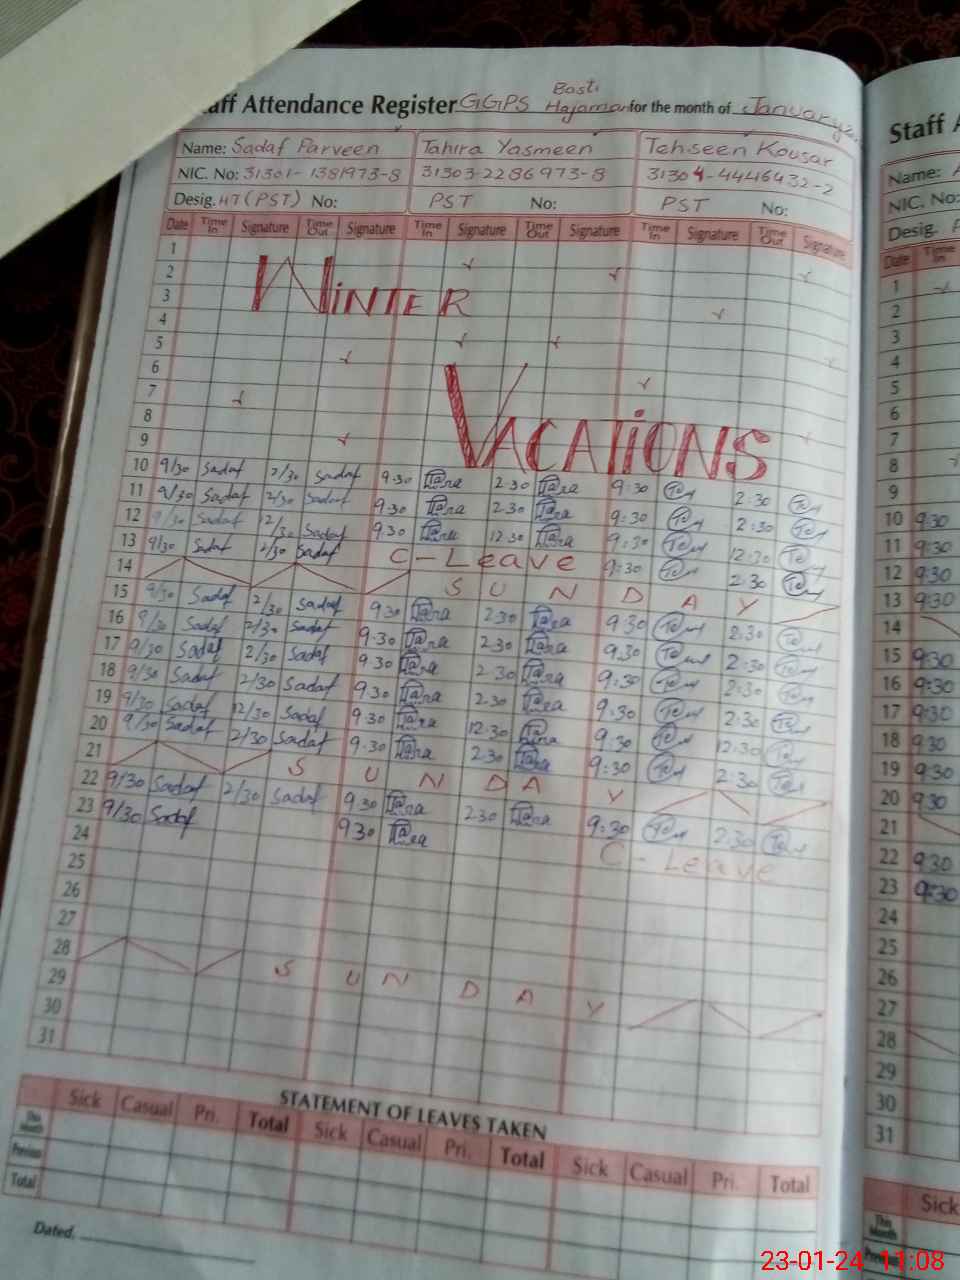 aff Attendance Register GGPS Basti Hajaman for the month of January
Name: Sadaf Parveen Tahira Yasmeen Tehseen Kousar
NIC. No: 31301-1381973-8 31303-2286973-8 31304-4446432-2
Desig. HT (PST) No: PST No: PST No:
Date Time In Signature Time Out Signature Time In Signature Time Out Signature Time In Signature Time Out Signature
1
2
3 WINTER
4
5
6
7
8
9 VACATIONS
10 9/30 Sadaf 2/30 Sadaf 9.30 2.30 9:30 2:30
11 9/30 Sadaf 2/30 Sadaf 9.30 2.30 9:30 2:30
12 9/30 Sadaf 12/30 Sadaf 9.30 12.30 9:30 12:30
13 9/30 Sadaf 2/30 Sadaf C-Leave 9:30 2:30
14 SUNDAY
15 9/30 Sadaf 2/30 Sadaf 9.30 2.30 9:30 2:30
16 9/30 Sadaf 2/30 Sadaf 9.30 2.30 9:30 2:30
17 9/30 Sadaf 2/30 Sadaf 9.30 2.30 9:30 2:30
18 9/30 Sadaf 2/30 Sadaf 9.30 2.30 9:30 2:30
19 9/30 Sadaf 12/30 Sadaf 9.30 12.30 9:30 12:30
20 9/30 Sadaf 2/30 Sadaf 9.30 2.30 9:30 2:30
21 SUNDAY
22 9/30 Sadaf 2/30 Sadaf 9.30 2.30 9:30 2:30
23 9/30 Sadaf 9.30 C-Leave
24
25
26
27
28 SUNDAY
29
30
31
STATEMENT OF LEAVES TAKEN
Sick Casual Pri. Total Sick Casual Pri. Total Sick Casual Pri. Total
This Month
Previous
Total
Dated.
Staff A
Name:
NIC. No:
Desig.
Date Time In
1
2
3
4
5
6
7
8
9
10 9:30
11 9:30
12 9:30
13 9:30
14
15 9:30
16 9:30
17 9:30
18 9:30
19 9:30
20 9:30
21
22 9:30
23 9:30
24
25
26
27
28
29
30
31
Sick
This Month
23-01-24 11:08